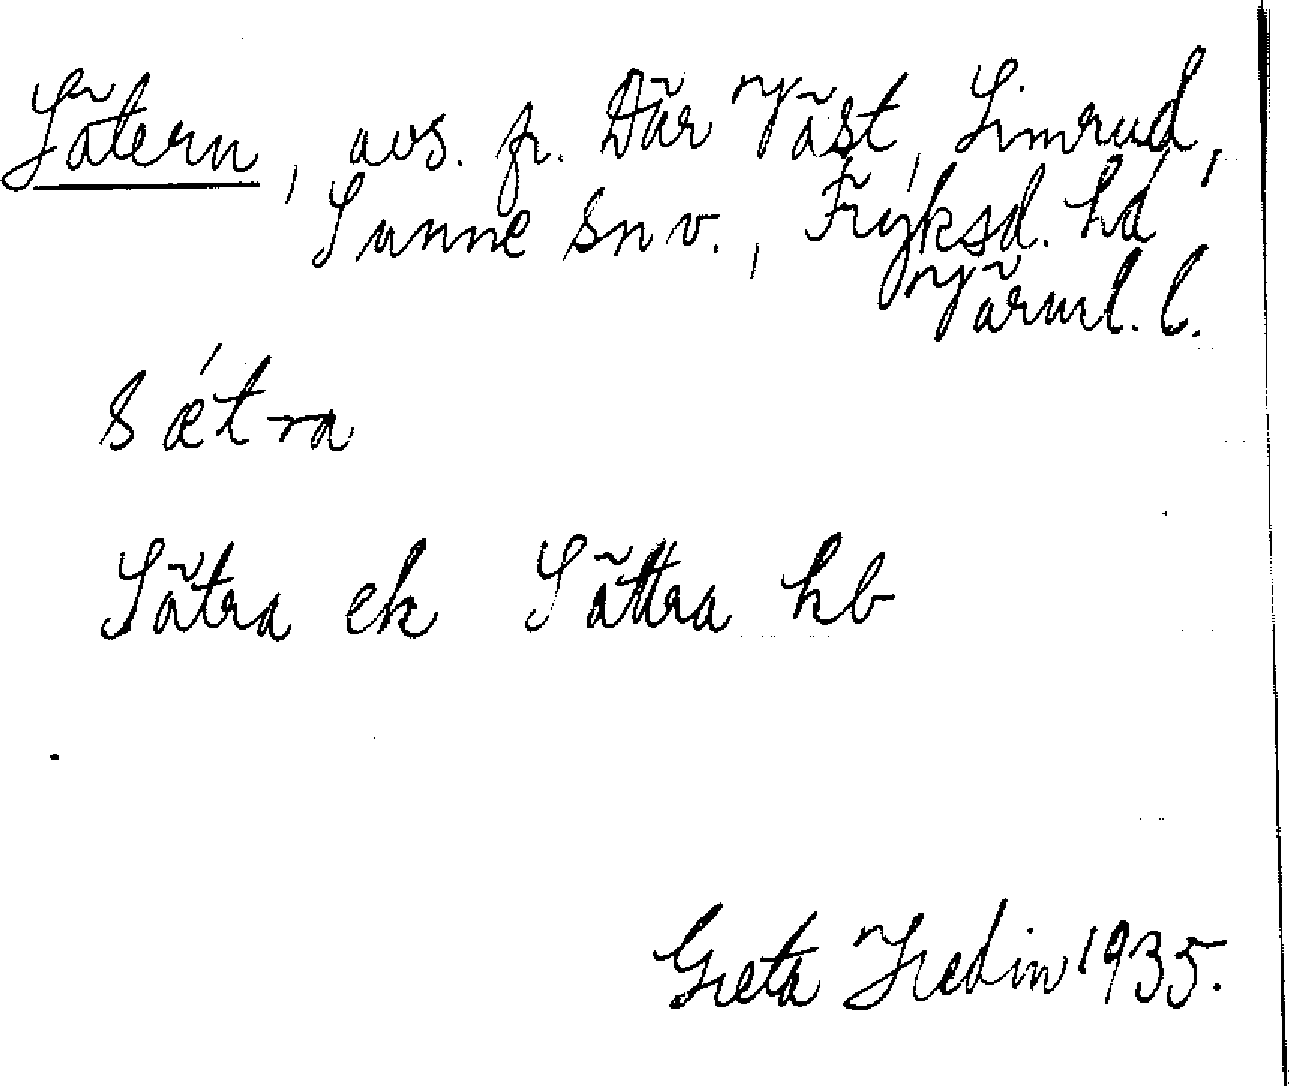 Sätern, avs. fr. Där Väst, Simrud,
Sunne sn v., Fryksd. hd
Värml. l.
sǽtra
Sätra ek Sättra hb
Greta Hedin 1935.